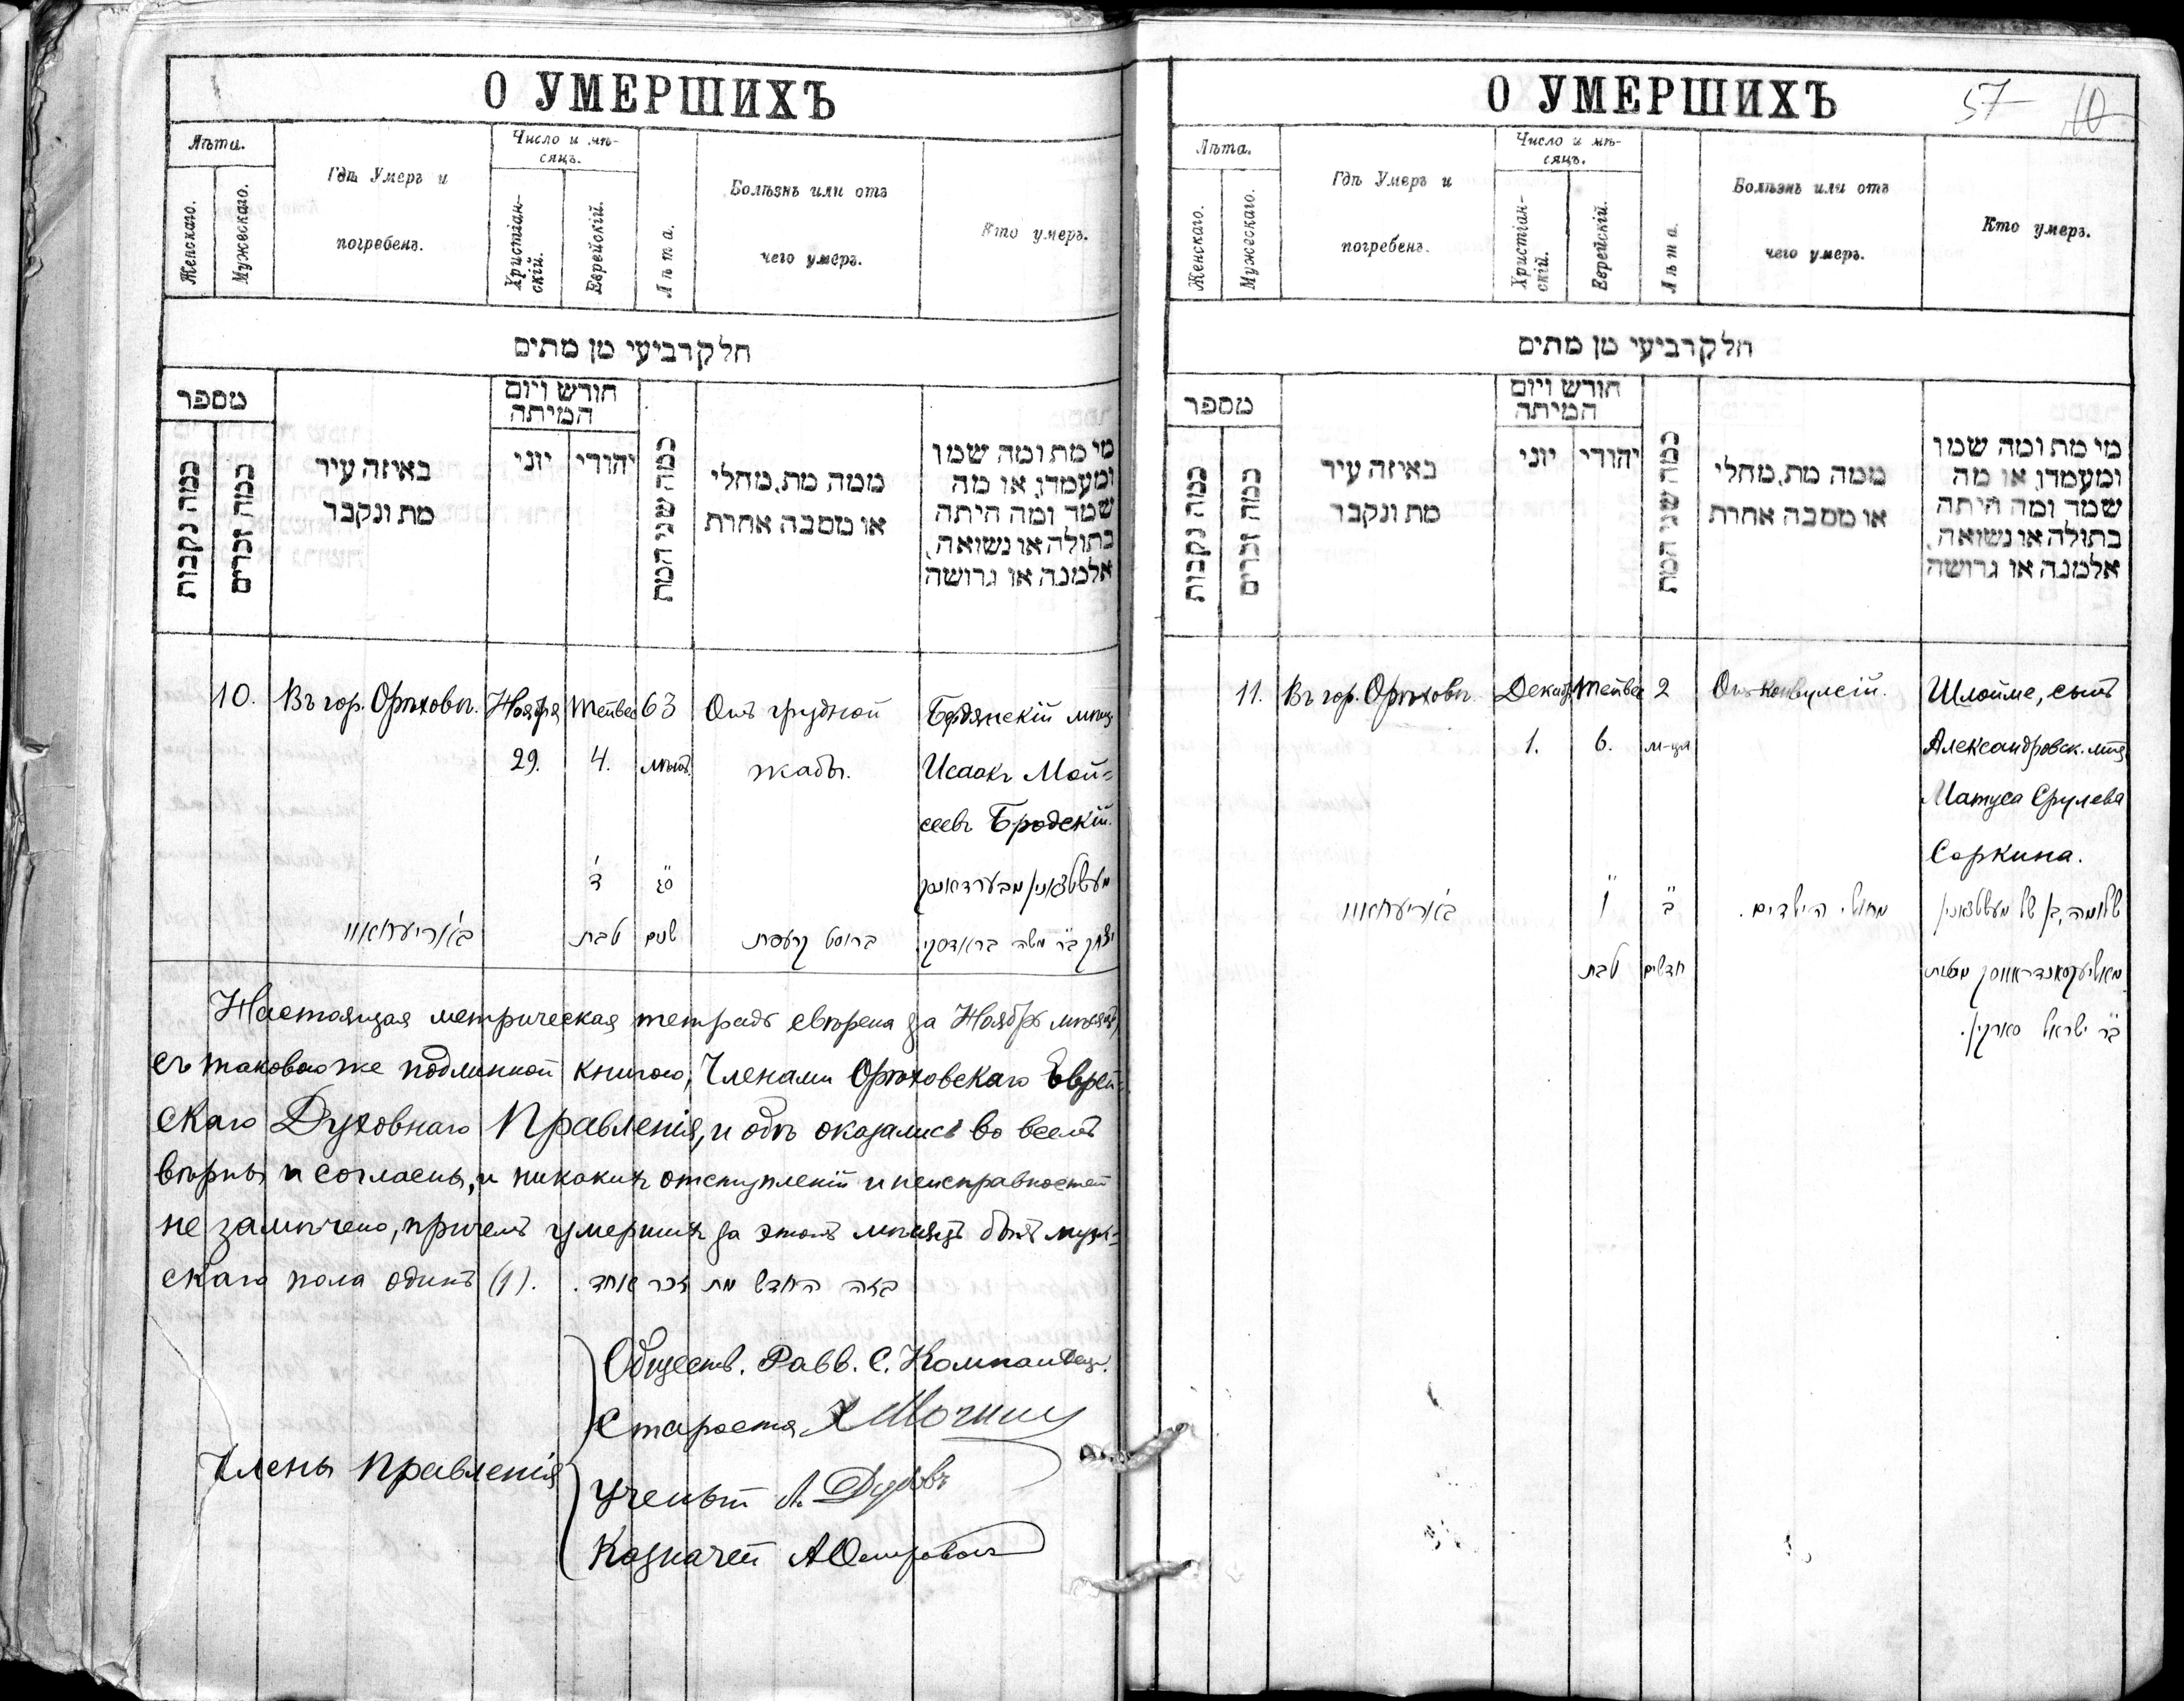 О УМЕРШИХЪ
Лѣта.
Женскаго.
Мужескаго.
Гдѣ Умеръ и
погребенъ.
Число и мѣ-
сяцъ.
Христіан-
скій.
Еврейскій.
Лѣта.
Болѣзнь или отъ
чего умеръ.
Кто умеръ.
חלק רביעי מן מתים
מספר
כמה נקבות
כמה זכרים
באיזה עיר
מת ונקבר
חורש ויום
המיתה
יוני
יהודי
כמה שני המת
ממה מת, מחלי
או מסבה אחרת
מי מת ומה שמו
ומעמדו, או מה
שמה ומה היתה
בתולה או נשואה,
אלמנה או גרושה
10. Въ гор. Орѣховѣ. Ноября Тейвес 63 Отъ грудной Бердянскій мѣщ.
29. 4. лѣтъ. жабы. Исаакъ Мой=
сеевъ Бродскій.
ד' ס"ג מעשטשאנין מבערדיאנסק
באריעחאוו טבת שנים ברוסט יצחק ב"ר משה בראדסקי
Настоящая метрическая тетрадь свѣрена за Ноябрь мѣсяцъ,
съ таковою же подлинной книгою, Членами Орѣховскаго Еврей=
скаго Духовнаго Правленія, и обѣ оказались во всемъ
вѣрны и согласны, и никакихъ отступленій и неисправностей
не замѣчено, причемъ умершихъ за этотъ мѣсяцъ былъ муж=
скаго пола одинъ (1). בזה החדש מת זכר אחד.
Обществ. Равв. С. Компанѣец.
Староста
Члены Правленія
Ученый Л. Дубовъ
Казначей
О УМЕРШИХЪ
57 10
Лѣта.
Женскаго.
Мужескаго.
Гдѣ Умеръ и
погребенъ.
Число и мѣ-
сяцъ.
Христіан-
скій.
Еврейскій.
Лѣта.
Болѣзнь или отъ
чего умеръ.
Кто умеръ.
חלק רביעי מן מתים
מספר
כמה נקבות
כמה זכרים
באיזה עיר
מת ונקבר
חורש ויום
המיתה
יוני
יהודי
כמה שני המת
ממה מת, מחלי
או מסבה אחרת
מי מת ומה שמו
ומעמדו, או מה
שמה ומה היתה
בתולה או נשואה,
אלמנה או גרושה
11. Въ гор. Орѣховѣ. Декаб. Тейвес 2 Отъ Конвулсій. Шлойме, сынъ
1. 6. м-ца Александровск. мѣщ.
Матуса Срулева
Соркина.
באריעחאוו ו' ב' מחולי הילדים. שלומה, בן של מעשטשאנין
טבת חדשים מאליעקסאנדראווסק מטות
ב"ר ישראל סארקין.